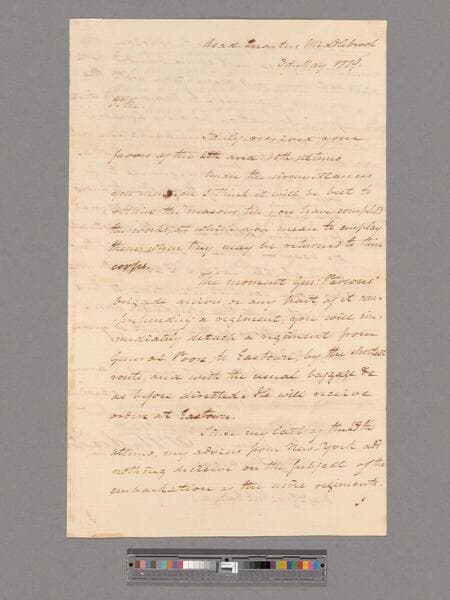 Head Quarters Middlebrook
3d May 1779.
Sir.
I duly received your
favors of the and 30th ultimo
Under the circumstances
you mention I think it will be best to
retain the masons, till you have compleated
the works at which you mean to employ
them; when they may be returned to their
corps.
The moment Genl. Parsons'
brigade arrives or any part of it com-
prehending a regiment, you will im-
mediately detach a regiment from
General Poor to Eastown, by the shortest
route, and with the usual baggage &c
as before directed. He will receive
orders at Eastown.
Since my last of the 28th
ultimo, my advices from New-York add
nothing decisive on the subject of the
embarkation of the nine regiments.